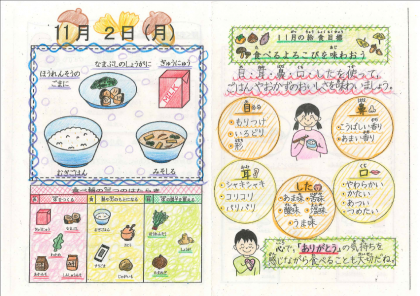 11月 2日(月)
なまぶしのしょうがに
ぎゅうにゅう
ほうれんそうの
ごまに
むぎごはん
みそしる
食べ物の三つのはたらき
11月の給食目標
食べるよろこびを味わおう
目・耳・鼻・口・したを使って、
ごはんやおかずのおいしさを味わいましょう。
目
・もりつけ
・いろどり
・形
鼻
・こうばしい香り
・あまい香り
耳
シャキシャキ
コリコリ
パリパリ
した
あま味・苦味
酸味・塩味
・うま味
口
・やわらかい
・かたい
・あつい
・つめたい
心で、「ありがとう」の気持ちを
感じながら食べることも大切だね。